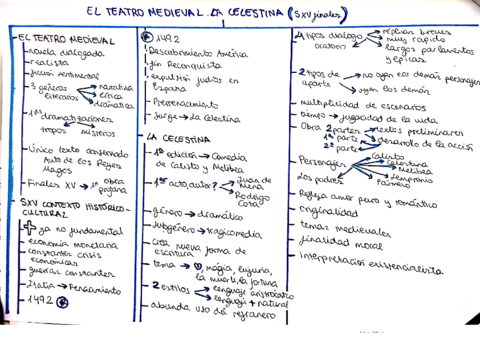 EL TEATRO MEDIEVAL. LA CELESTINA (S.XV finales)
EL TEATRO MEDIEVAL
novela dialogada
realista
sentimental
3 géneros literarios
narrativa
lírica
dramática
1as dramatizaciones
tropos
misterios
Único texto conservado
Auto de los Reyes
Magos
Finales XV → 1ª obra
profana
SXV CONTEXTO HISTÓRICO-
CULTURAL
ya no fundamental
economía monetaria
constantes crisis
económicas
guerras constantes
Italia → Renacimiento
1492
1492
Descubrimiento América
fin Reconquista
expulsión judíos en
España
Prerrenacimiento
Surge → La Celestina
LA CELESTINA
1ª edición → Comedia
de Calisto y Melibea
1er acto, autor?
Juan de
Mena
Rodrigo
Cota
género → dramático
subgénero → tragicomedia
Crea nueva forma de
escritura
tema → magia, lujuria,
la muerte, la fortuna
2 estilos
lenguaje aristocrático
lenguaje + natural
abunda uso del refranero
4 tipos diálogo
oratorio
réplicas breves
muy rápido
largos parlamentos
y réplicas
2 tipos de
aparte
no oyen los demás personajes
oyen los demás
multiplicidad de escenarios
tiempo → fugacidad de la vida
Obra 2 partes → textos preliminares
1ª parte
desarrollo de la acción
2ª parte
Personajes
Calisto
Celestina
Melibea
Sempronio
Pármeno
Los padres
Refleja amor puro y romántico
originalidad
temas medievales
finalidad moral
interpretación existencialista